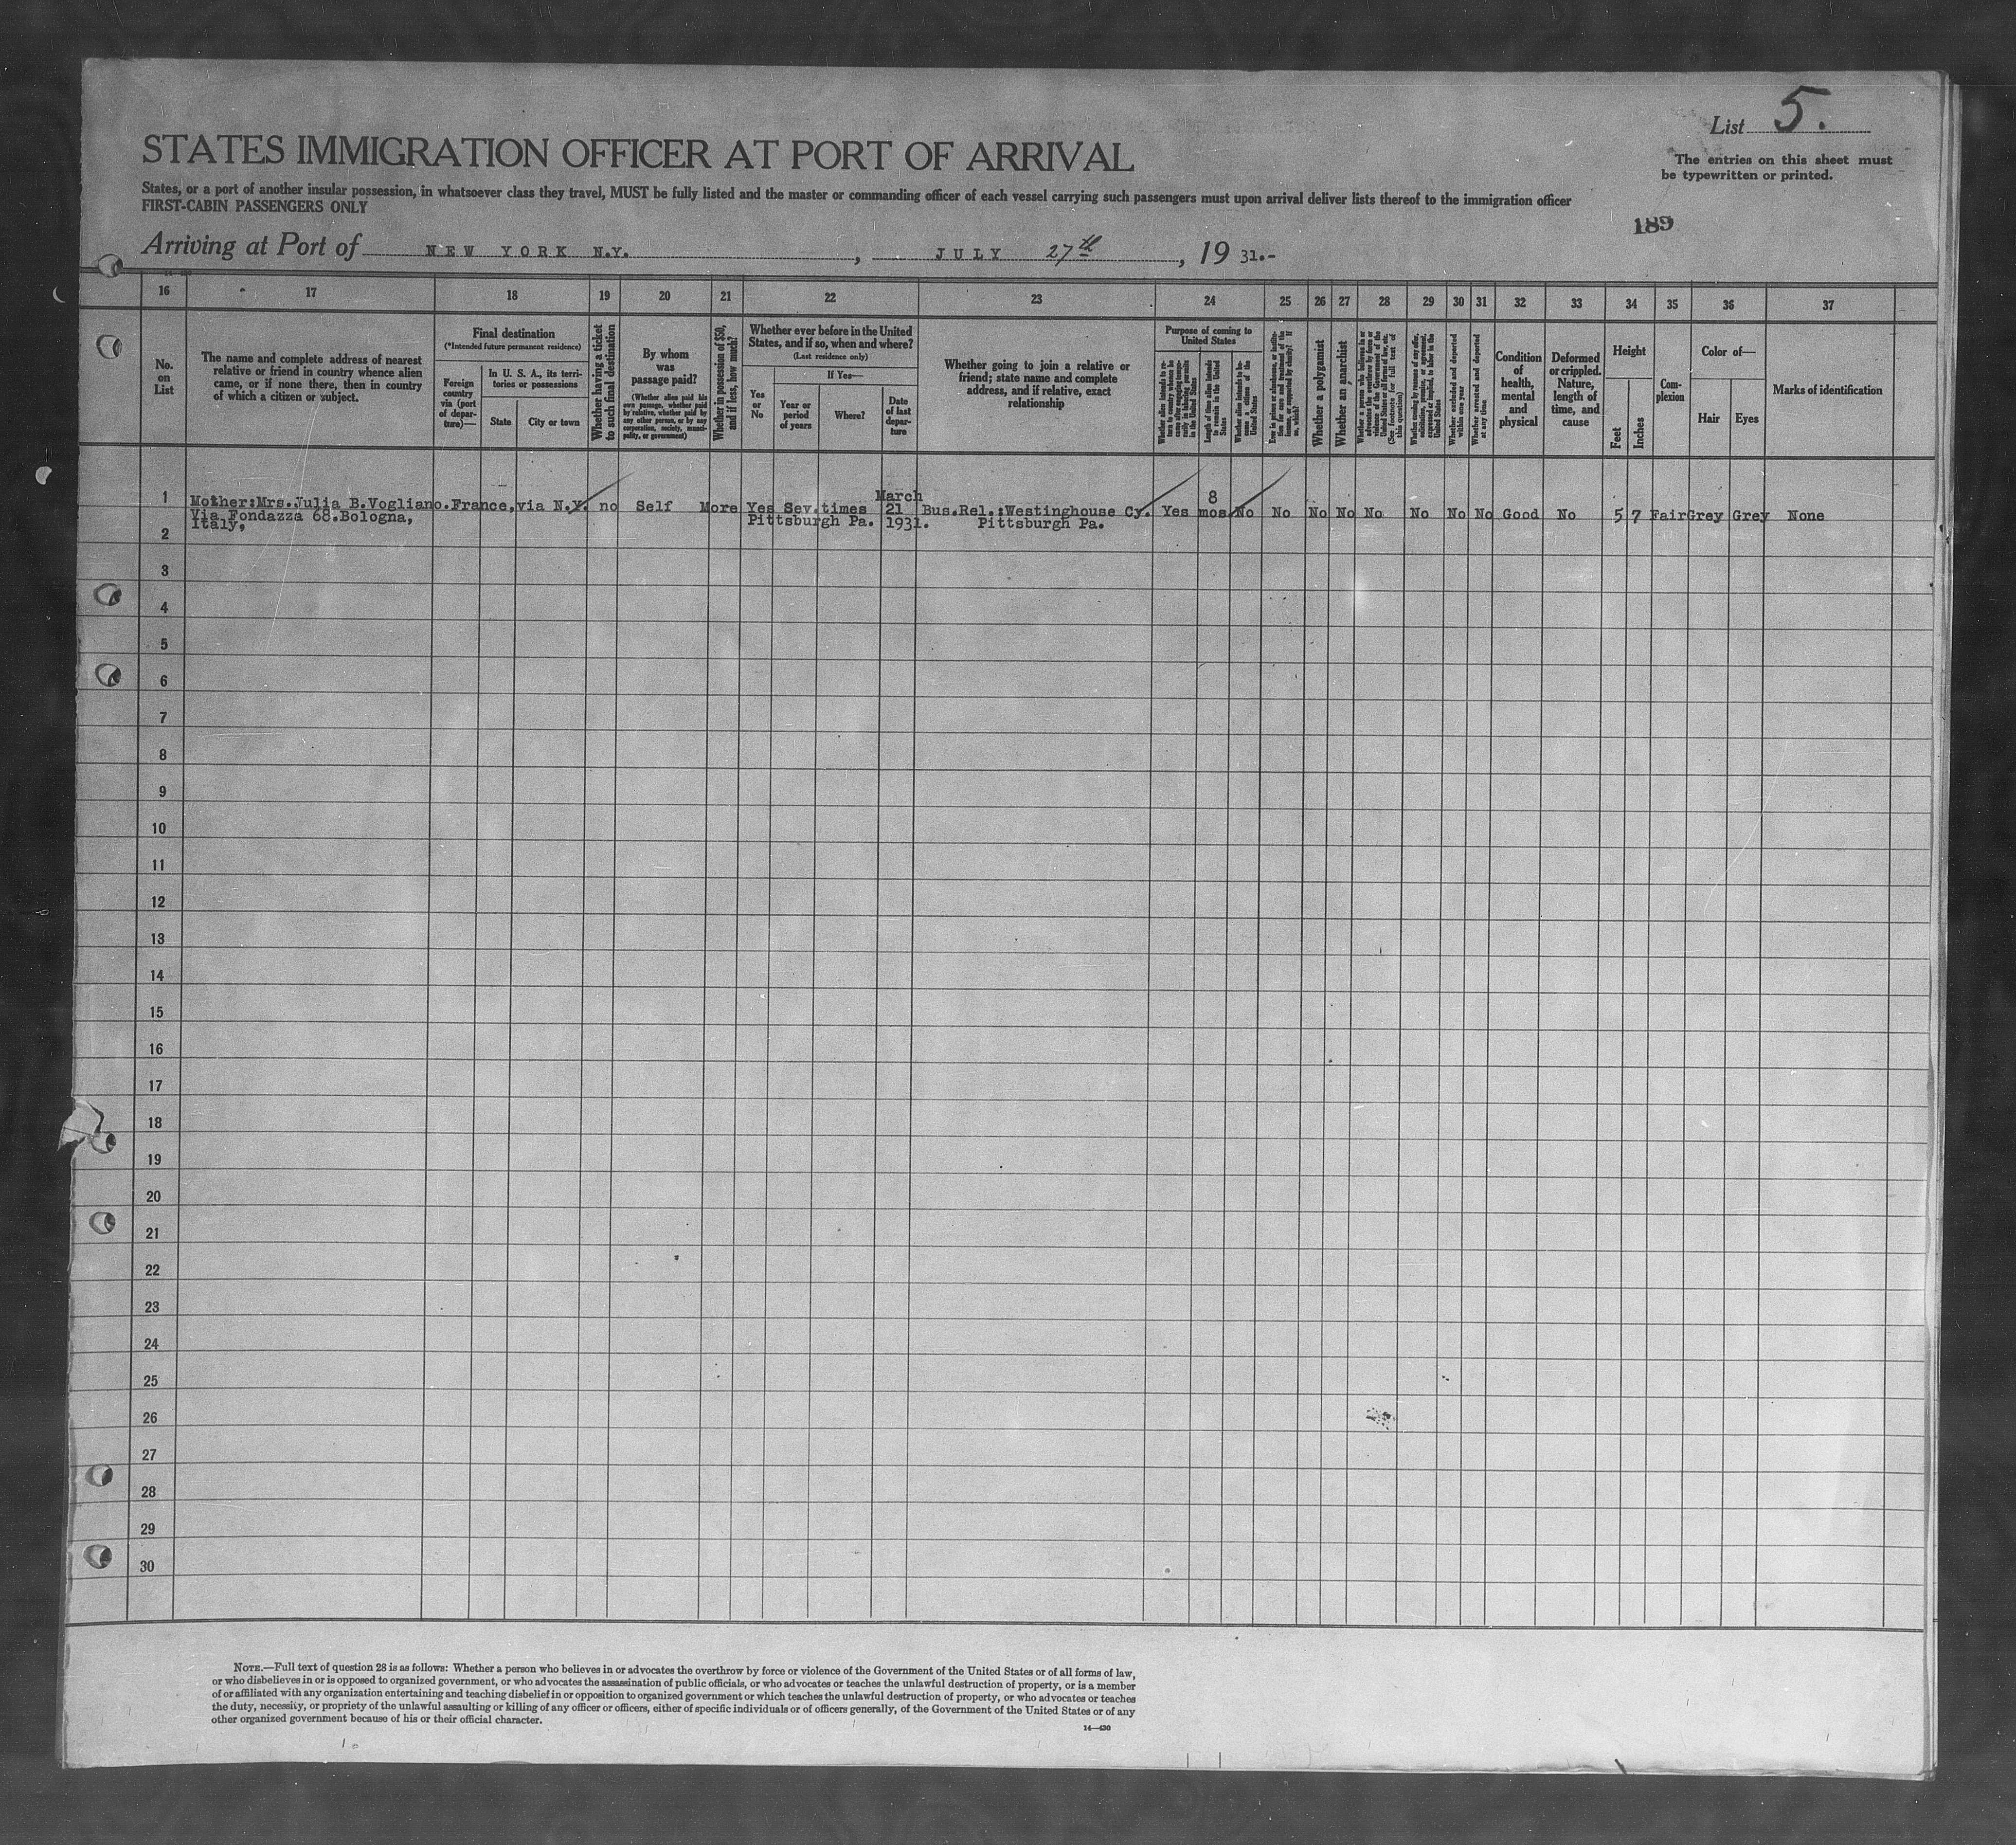 List 5.
STATES IMMIGRATION OFFICER AT PORT OF ARRIVAL
The entries on this sheet must
be typewritten or printed.
States, or a port of another insular possession, in whatsoever class they travel, MUST be fully listed and the master or commanding officer of each vessel carrying such passengers must upon arrival deliver lists thereof to the immigration officer
FIRST-CABIN PASSENGERS ONLY
189
Arriving at Port of NEW YORK N.Y. , JULY 27th , 19 31.-
16 17 18 19 20 21 22 23 24 25 26 27 28 29 30 31 32 33 34 35 36 37
No.
on
List
The name and complete address of nearest
relative or friend in country whence alien
came, or if none there, then in country
of which a citizen or subject.
Final destination
(*Intended future permanent residence)
Foreign
country
via (port
of depar-
ture)—
In U. S. A., its terri-
tories or possessions
State
City or town
Whether having a ticket
to such final destination
By whom
was
passage paid?
(Whether alien paid his
own passage, whether paid
by relative, whether paid by
any other person, or by any
corporation, society, munici-
pality, or government)
Whether in possession of $50,
and if less, how much?
Whether ever before in the United
States, and if so, when and where?
(Last residence only)
Yes
or
No
If Yes—
Year or
period
of years
Where?
Date
of last
depar-
ture
Whether going to join a relative or
friend; state name and complete
address, and if relative, exact
relationship
Purpose of coming to
United States
Whether alien intends to re-
turn to country whence he
came after engaging tempo-
rarily in laboring pursuits
in the United States
Length of time alien intends
to remain in the United
States
Whether alien intends to be-
come a citizen of the
United States
Ever in prison or almshouse, or institu-
tion for care and treatment of the
insane, or supported by charity? If
so, which?
Whether a polygamist
Whether an anarchist
Whether a person who believes in or
advocates the overthrow by force or
violence of the Government of the
United States or all forms of law, etc.
(See footnote for full text of
this question)
Whether coming by reason of any offer,
solicitation, promise, or agreement,
expressed or implied, to labor in the
United States
Whether excluded and deported
within one year
Whether arrested and deported
at any time
Condition
of
health,
mental
and
physical
Deformed
or crippled.
Nature,
length of
time, and
cause
Height
Feet
Inches
Com-
plexion
Color of—
Hair
Eyes
Marks of identification
1 Mother:Mrs.Julia B.Vogliano.France,via N.Y. no Self More Yes Sev.times March 21 Bus.Rel.:Westinghouse Cy. Yes 8 mos No No No No No No No No Good No 5 7 Fair Grey Grey None
Via Fondazza 68.Bologna, Pittsburgh Pa. 1931. Pittsburgh Pa.
Italy,
2
3
4
5
6
7
8
9
10
11
12
13
14
15
16
17
18
19
20
21
22
23
24
25
26
27
28
29
30
NOTE.—Full text of question 28 is as follows: Whether a person who believes in or advocates the overthrow by force or violence of the Government of the United States or of all forms of law,
or who disbelieves in or is opposed to organized government, or who advocates the assassination of public officials, or who advocates or teaches the unlawful destruction of property, or is a member
of or affiliated with any organization entertaining and teaching disbelief in or opposition to organized government or which teaches the unlawful destruction of property, or who advocates or teaches
the duty, necessity, or propriety of the unlawful assaulting or killing of any officer or officers, either of specific individuals or of officers generally, of the Government of the United States or of any
other organized government because of his or their official character.
14—430